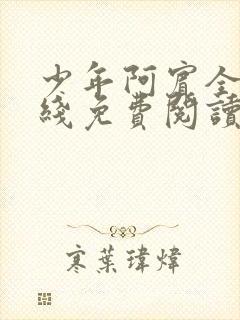 少年阿賓全
綫免費閱讀
寒葉瑋煒